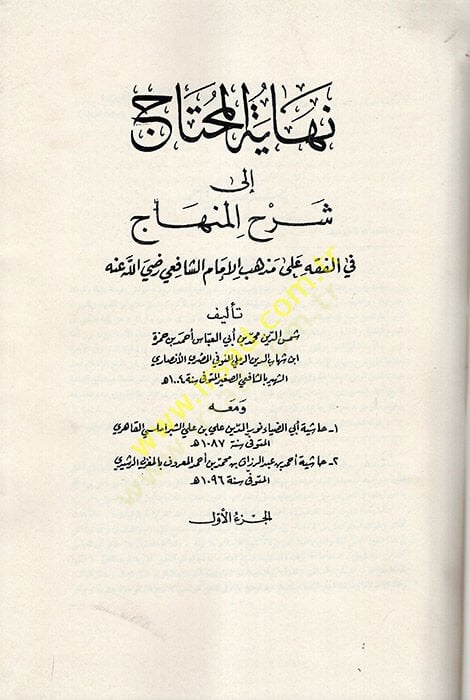 نهاية المحتاج
إلى
شرح المنهاج
في الفقه على مذهب الإمام الشافعي رضي الله عنه
تأليف
شمس الدين محمد بن أبي العباس أحمد بن حمزة
ابن شهاب الدين الرملي المنوفي المصري الأنصاري
الشهير بالشافعي الصغير المتوفى سنة ١٠٠٤هـ
ومعه
١- حاشية أبي الضياء نور الدين علي بن علي الشبراملسي القاهري
المتوفى سنة ١٠٨٧هـ
٢- حاشية أحمد بن عبد الرزاق بن محمد بن أحمد المعروف بالمغربي الرشيدي
المتوفى سنة ١٠٩٦هـ
الجزء الأول